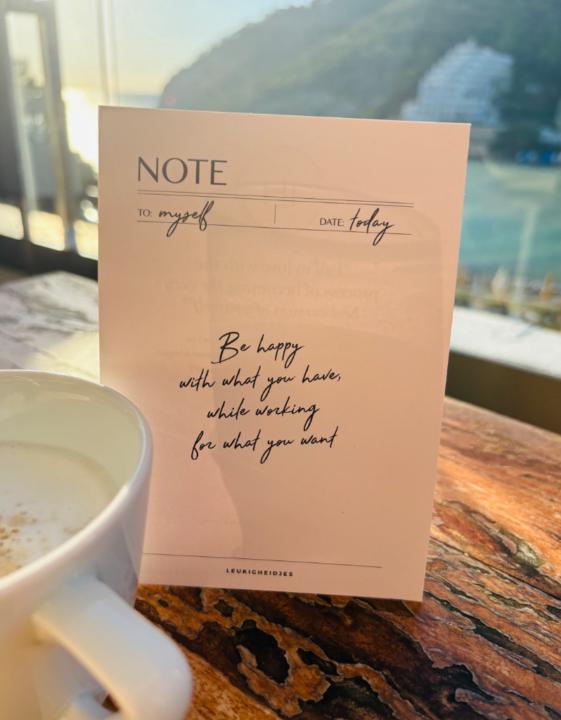 NOTE
TO: myself DATE: today
Be happy
with what you have,
while working
for what you want
LEUKIGHEIDJES